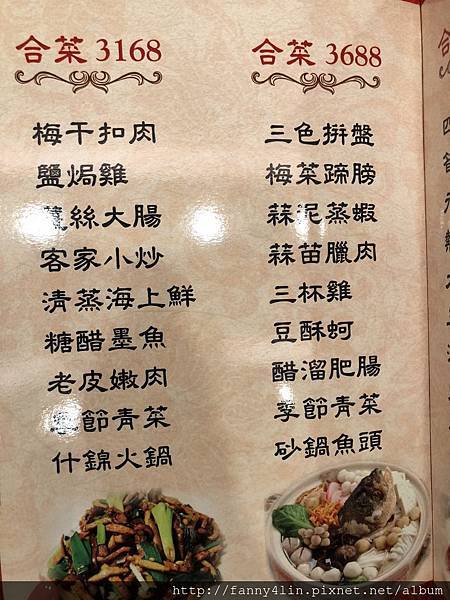 合菜 3168
梅干扣肉
鹽焗雞
絲大腸
客家小炒
清蒸海上鮮
糖醋墨魚
老皮嫩肉
節青菜
什錦火鍋
合菜 3688
三色拼盤
梅菜蹄膀
蒜泥蒸蝦
蒜苗臘肉
三杯雞
豆酥蚵
醋溜肥腸
季節青菜
砂鍋魚頭
http://fanny4lin.pixnet.net/album